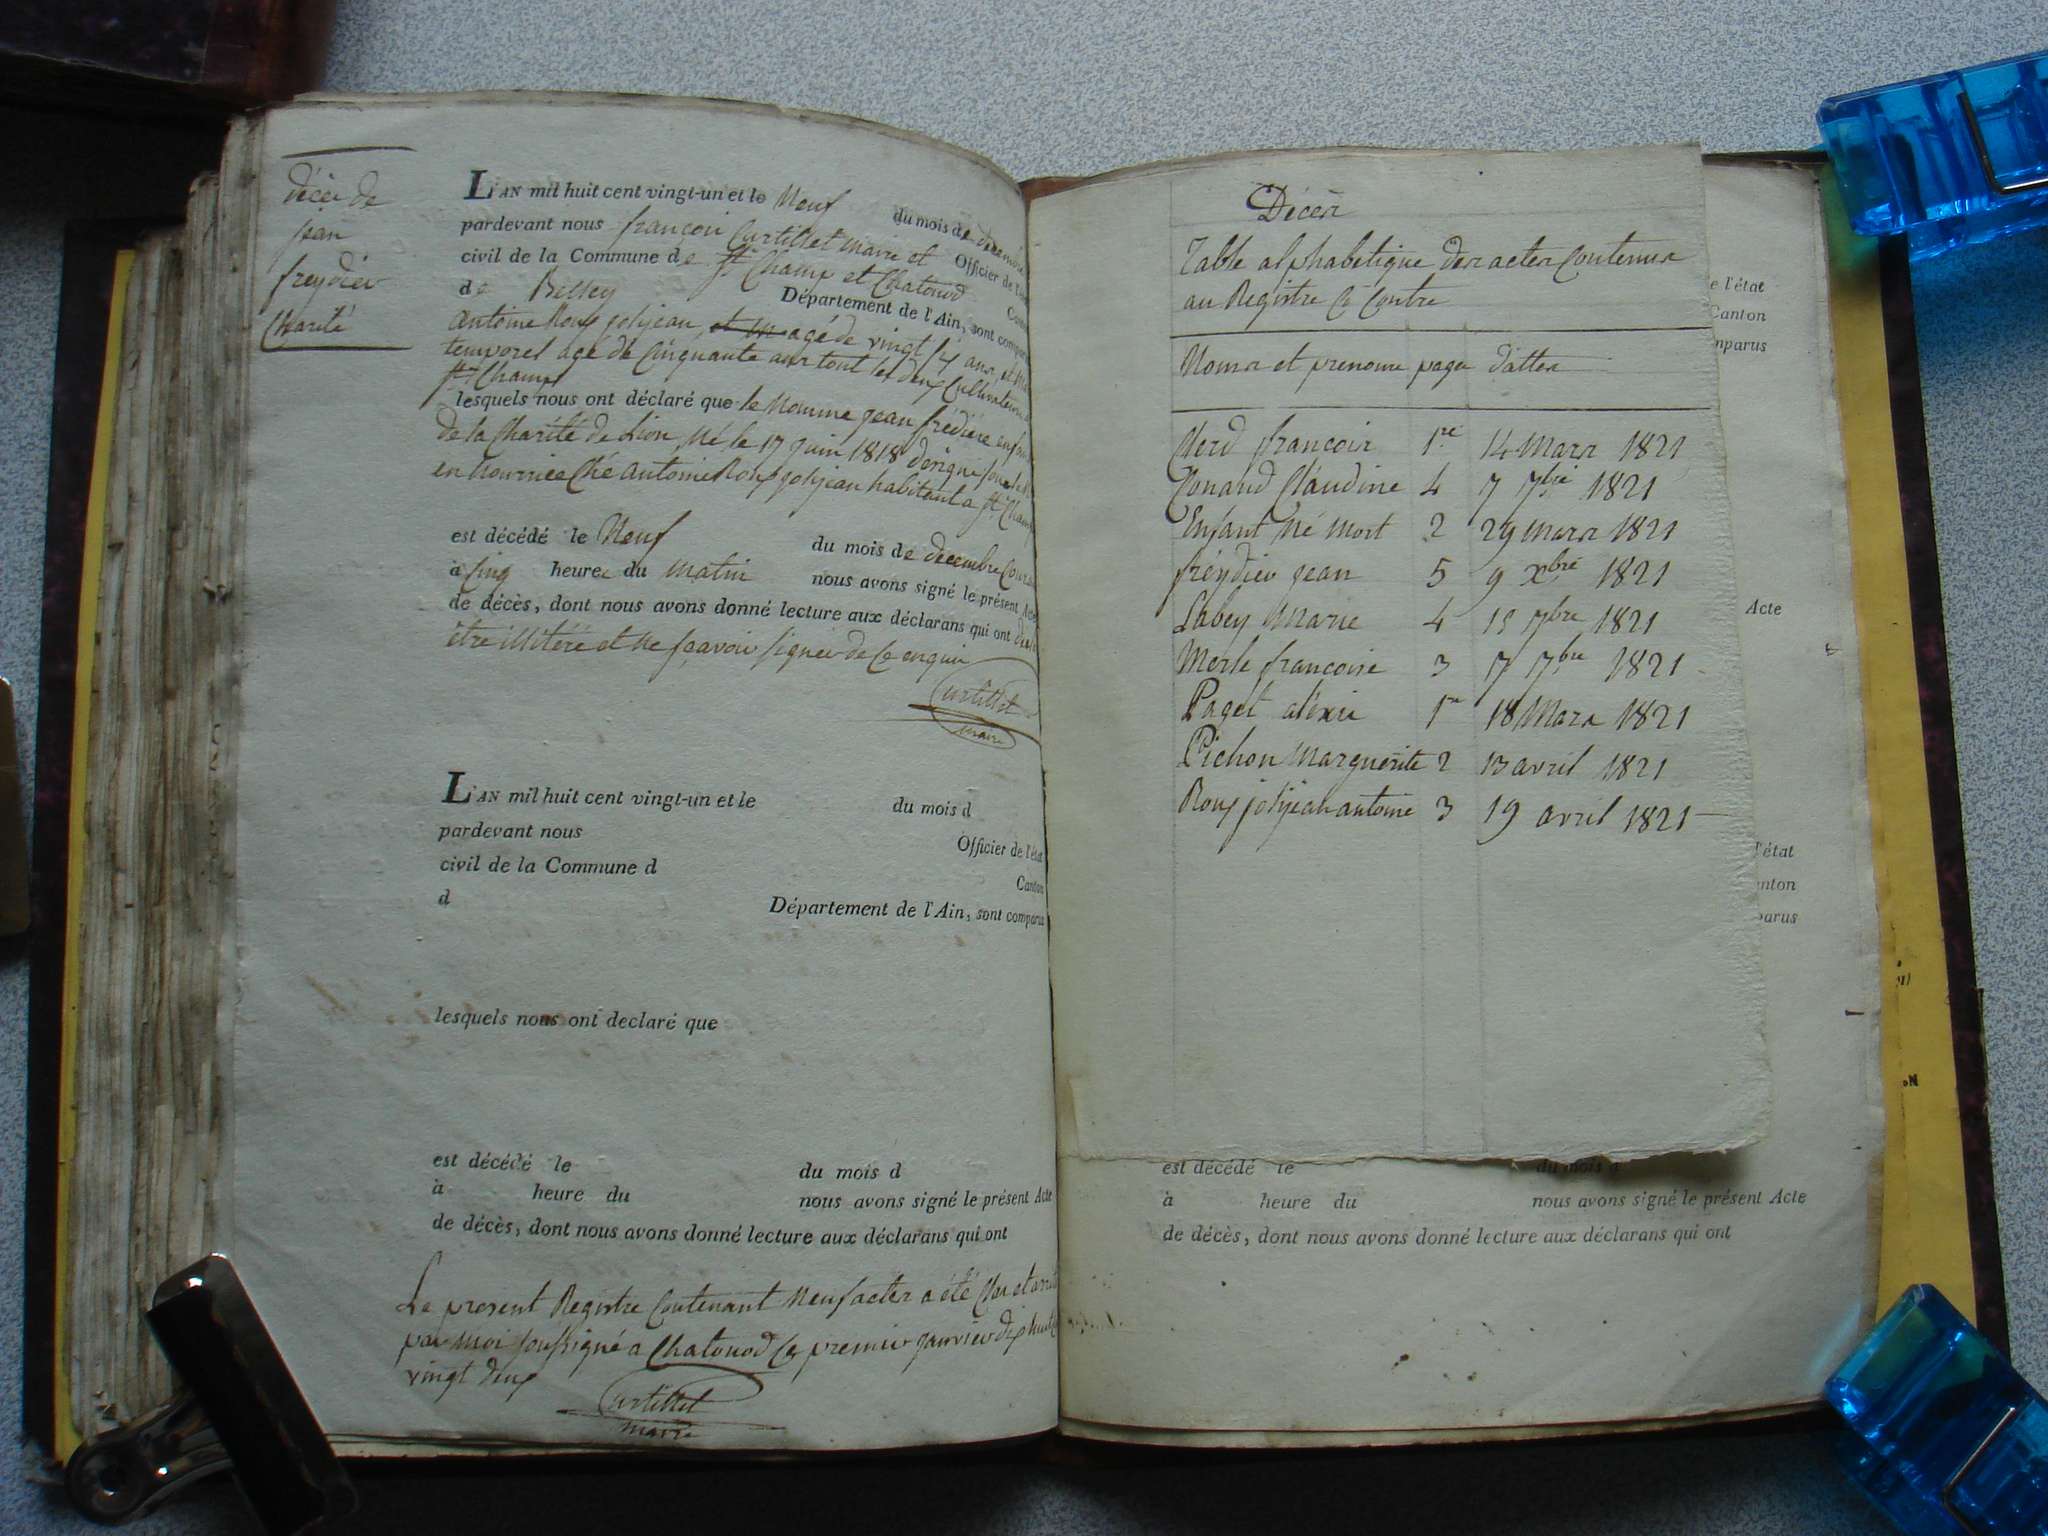 décès de
jean
freydier
Charité
L'AN mil huit cent vingt-un et le Neuf du mois de decembre
pardevant nous françois Curtillet maire et Officier de l'état
civil de la Commune de St Champ et Chatonod Canton
de Belley Département de l'Ain, sont comparus
antoine Roux jolyjean, agé de vingt six ans, et
agé de Cinquante ans tout les deux Cultivateurs
St Champ
lesquels nous ont déclaré que le Nommé jean frédière enfant
de la Charité de Lion, Né le 17 juin 1818
en nourrice Ché antoine Roux jolyjean habitant a St Champ
est décédé le Neuf du mois de decembre Courant
à Cinq heures du matin nous avons signé le présent Acte
de décès, dont nous avons donné lecture aux déclarans qui ont
être illitéré et ne sçavoir signer de Ce enquis
Curtillet
maire
L'AN mil huit cent vingt-un et le du mois d
pardevant nous Officier de l'état
civil de la Commune d Canton
d Département de l'Ain, sont comparus
lesquels nous ont déclaré que
est décédé le du mois d
à heure du nous avons signé le présent Acte
de décès, dont nous avons donné lecture aux déclarans qui ont
Le present Registre Contenant Neuf actes a été Clos et arrété
par moi soussigné a Chatonod Ce premier janvier dix huit
vingt deux
Curtillet
maire
Décès
Table alphabétique des actes Contenus
au Registre Ci Contre
Noms et prenoms pages dattes
Clerd françois 1re 14 Mars 1821
Conand Claudine 4 7 7bre 1821
Enfant Né Mort 2 29 Mars 1821
freydier jean 5 9 xbre 1821
Labey Marie 4 15 7bre 1821
Merle francoise 3 17 7bre 1821
Paget aléxis 1re 18 Mars 1821
Pichon Marguerite 2 13 avril 1821
Roux jolyjean antoine 3 19 avril 1821
e l'état
Canton
mparus
Acte
l'état
anton
parus
est décédé le du mois d
à heure du nous avons signé le présent Acte
de décès, dont nous avons donné lecture aux déclarans qui ont